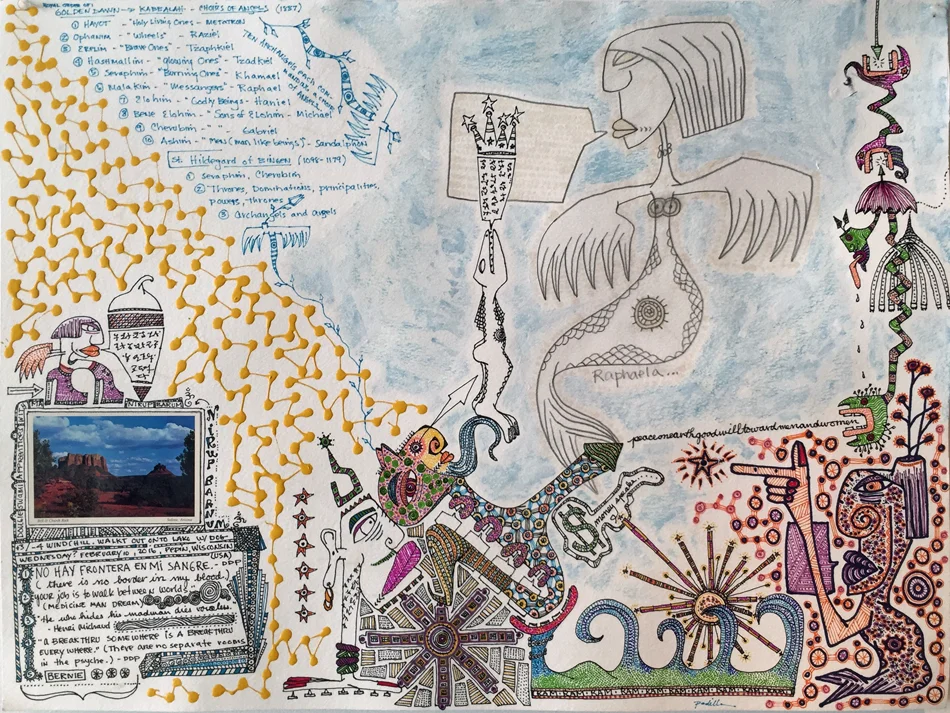 GOLDEN DAWN → KABBALAH - CHOIRS OF ANGELS (1887)
① HAYOT - "Holy Living Ones - METATRON
② Ophanim - "Wheels" - Raziel
③ ERELIM - "Brave Ones" - Tzaphkiel
④ Hashmallim - "glowing Ones" - Tzadkiel
⑤ Seraphim - "Burning Ones" - Khamael
⑥ Malakim - "Messengers" - Raphael
⑦ Elohim - "Godly Beings - Haniel
⑧ Bene Elohim - "Sons of Elohim - Michael
⑨ Cherubim - " " - Gabriel
⑩ Ashim - "Men (man like beings) - Sandalphon
TEN ARCHANGELS each
St. Hildegard of BINGEN (1098-1179)
① Seraphim, Cherubim
② Thrones, Dominations, principalities,
powers, Thrones
③ Archangels and angels
Raphaela...
peaceonearthgoodwilltowardmenandwomen
money speaks
$
NIRUP BABUM
-4 WINDCHILL. WALKT OUT ONTO LAKE W/ DEB-
WEDNESDAY? FEBRUARY 2016, PEPIN, WISCONSIN
(USA)
NO HAY FRONTERA EN MI SANGRE. - DDP
(there is no border in my blood)
your job is to walk between worlds
(MEDICINE MAN DREAM)
"He who hides his madman dies voiceless.
- Henri Michaud
"A BREAKTHRU SOMEWHERE IS A BREAKTHRU
EVERYWHERE." (There are no separate rooms
in the psyche.) - DDP
BERNIE
RAM - RAM - RAM - RAM - RAM - RAM - RAM - RAM - RAM
Padilla